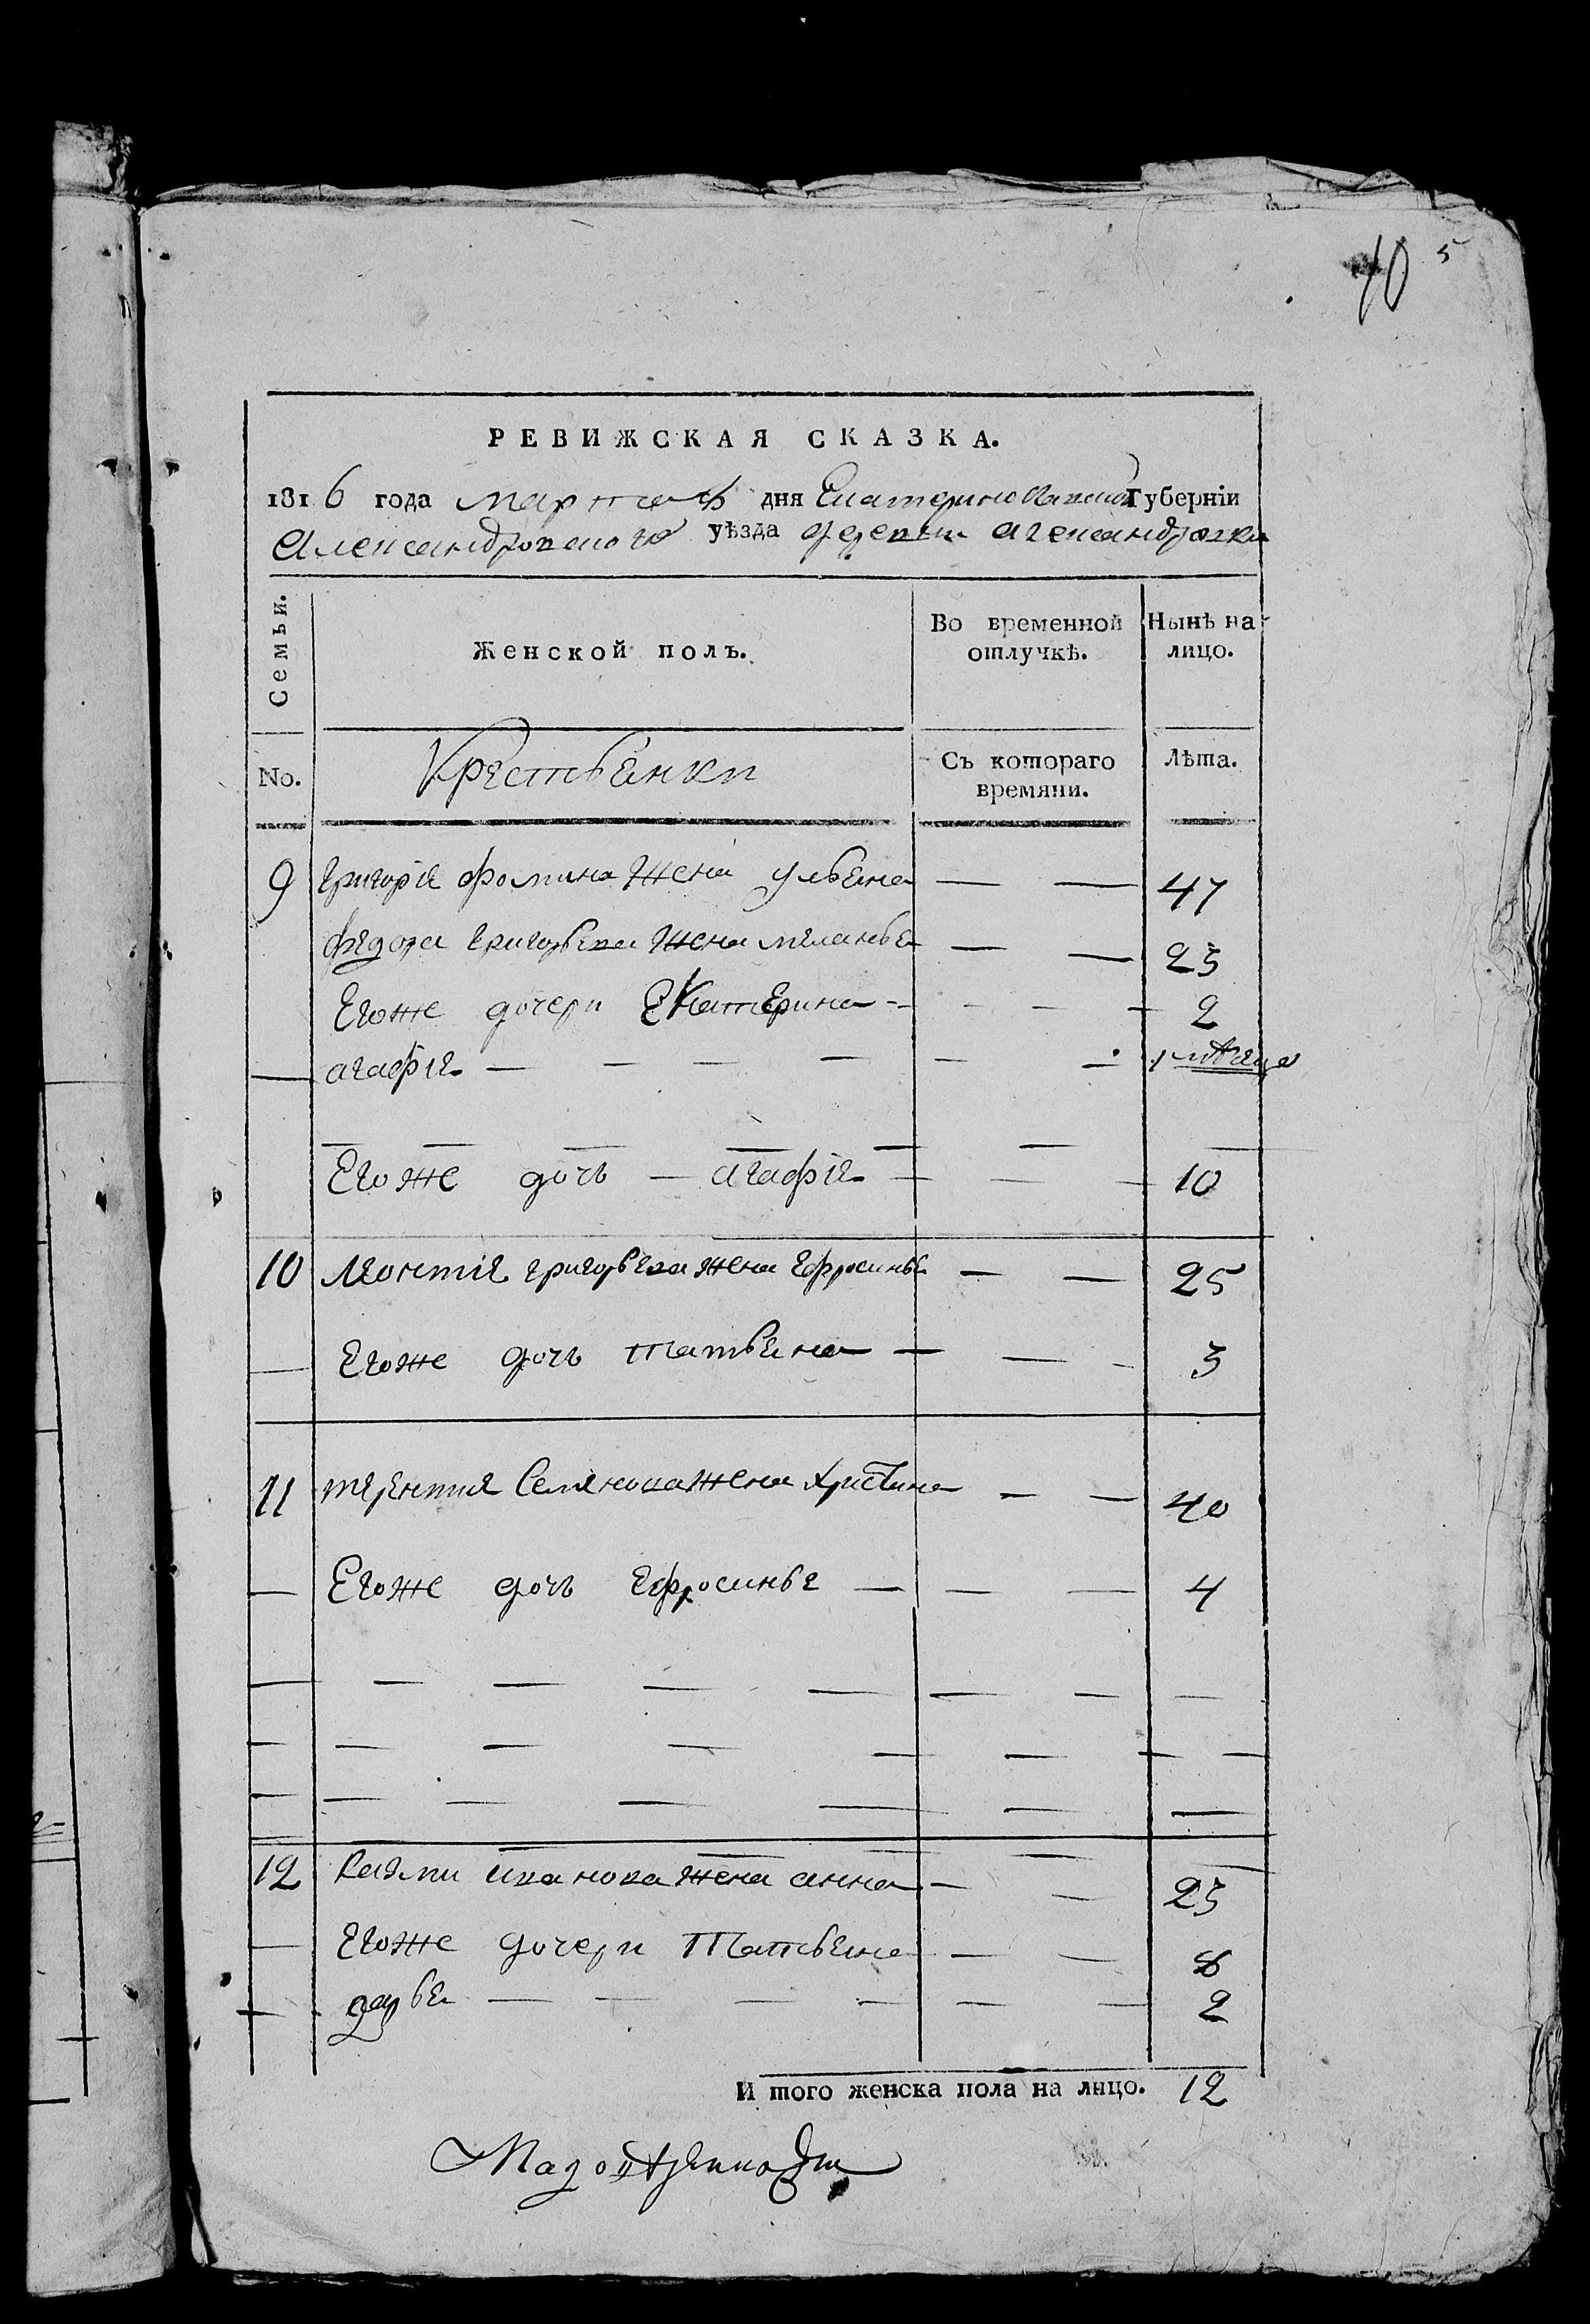 10 5
РЕВИЖСКАЯ СКАЗКА.
1816 года марта 8 дня Екатеринославской Губерніи
Александровского уѣзда деревни Александровки
Семьи. Женской полъ. Во временной отлучкѣ. Нынѣ на лицо.
No. Крестьянки Съ котораго времяни. Лѣта.
9 Григорія Фомина жена Ульяна — — 47
Федора Григорьева жена Меланья — — 23
Егоже дочери Екатерина — — 2
Агафія — — — — — — 1 мѣсяца
Егоже дочь — Агафія — — — 10
10 Леонтія Григорьева жена Ефросинья — — 25
Егоже дочь Татьяна — — — 3
11 Терентия Семенова жена Христина — — 40
Егоже дочь Ефросинья — — — 4
12 Иванова жена Анна — — 23
Егоже дочери Татьяна — — 8
Дарья — — — — — — 2
И того женска пола на лицо. 12